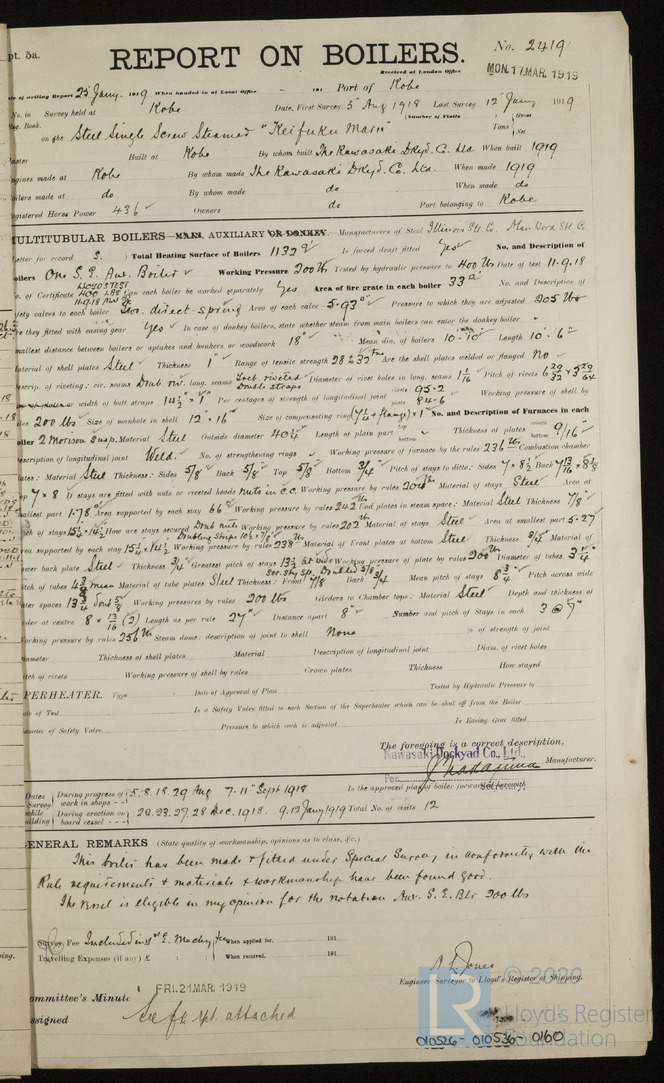 pt. 5a.
REPORT ON BOILERS.
No. 2419
Received at London Office
MON. 17. MAR. 1919
of writing Report 25 Jany. 1919 When handed in at Local Office 191 Port of Kobe
No. in Survey held at Kobe Date, First Survey 5 Aug 1918 Last Survey 12 Jany 1919
Book. (Number of Visits Gross
on the Steel Single Screw Steamer "Keifuku Maru" Tons Net
Master Built at Kobe By whom built The Kawasaki Dkyd. Co. Ltd When built 1919
Engines made at Kobe By whom made The Kawasaki Dkyd. Co. Ltd. When made 1919
Boilers made at do By whom made do When made do
Registered Horse Power 436 Owners do Port belonging to Kobe
MULTITUBULAR BOILERS MAIN, AUXILIARY OR DONKEY.—Manufacturers of Steel Illinois Stl. Co.
Letter for record S. ) Total Heating Surface of Boilers 1132 Is forced draft fitted Yes No. and Description of
Boilers One S. E. Aux. Boiler Working Pressure 200 lbs Tested by hydraulic pressure to 400 lbs Date of test 11.9.18
No. of Certificate Can each boiler be worked separately Yes Area of fire grate in each boiler 33 No. and Description of
safety valves to each boiler Two. direct. spring Area of each valve 5.93 Pressure to which they are adjusted 205 lbs
Are they fitted with easing gear Yes In case of donkey boilers, state whether steam from main boilers can enter the donkey boiler
Smallest distance between boilers or uptakes and bunkers or woodwork 18" Mean dia. of boilers 10'-10" Length 10'-6"
Material of shell plates Steel Thickness 1" Range of tensile strength 28 to 32 tons Are the shell plates welded or flanged No
Descrip. of riveting: cir. seams Doub. riv. long. seams Treb. riveted Double straps Diameter of rivet holes in long. seams 1 1/16 Pitch of rivets
width of butt straps 14 1/2" × 1" Per centages of strength of longitudinal joint rivets 95.2 plate 84.6 Working pressure of shell by
rules 200 lbs Size of manhole in shell 12" × 16" Size of compensating ring (7 1/4 + flange) × 1" No. and Description of Furnaces in each
boiler 2 Morison Susp. Material Steel Outside diameter 40 1/4 Length of plain part top bottom Thickness of plates crown bottom 9/16"
Description of longitudinal joint Weld. No. of strengthening rings Working pressure of furnace by the rules 236 lbs Combustion chamber
plates: Material Steel Thickness: Sides 5/8 Back 5/8 Top 5/8 Bottom 3/4 Pitch of stays to ditto: Sides 7 × 8 1/2 Back 7 13/16 × 8 1/8
Top 7 × 8 If stays are fitted with nuts or riveted heads nuts in c.c. Working pressure by rules Material of stays Steel Area at
smallest part 1.78 Area supported by each stay 66 Working pressure by rules 242 End plates in steam space: Material Steel Thickness 7/8"
Pitch of stays 15 1/4 × 14 1/2 How are stays secured Doub nuts Working pressure by rules 202 Material of stays Steel Area at smallest part 5.27
Area supported by each stay 15 1/4 × 14 1/2 Working pressure by rules 238 lbs Material of Front plates at bottom Steel Thickness 3/4 Material of
Lower back plate Steel Thickness 3/4 Greatest pitch of stays 13 1/2 at wide Working pressure of plate by rules 200 lbs Diameter of tubes 3 1/4"
Pitch of tubes mean Material of tube plates Steel Thickness: Front 7/8 Back 3/4 Mean pitch of stays 8 3/4 Pitch across wide
water spaces 13 3/4 Working pressures by rules 200 lbs Girders to Chamber tops: Material Steel Depth and thickness of
girder at centre 8 × 13/16 (2) Length as per rule 27" Distance apart 8" Number and pitch of Stays in each 3 @ 7"
Working pressure by rules 256 lbs Steam dome: description of joint to shell None % of strength of joint
Diameter Thickness of shell plates Material Description of longitudinal joint Diam. of rivet holes
Pitch of rivets Working pressure of shell by rules Crown plates Thickness How stayed
SUPERHEATER. Type Date of Approval of Plan Tested by Hydraulic Pressure to
Date of Test Is a Safety Valve fitted to each Section of the Superheater which can be shut off from the Boiler
Diameter of Safety Valve Pressure to which each is adjusted Is Easing Gear fitted
The foregoing is a correct description,
Kawasaki Dockyad Co., Ltd. Manufacturer.
Per Secretary
Dates During progress of 5. 8. 18. 29 Aug 7. 11 Sept 1918 Is the approved plan of boiler forwarded
of Survey work in shops
while During erection on 20. 23. 27. 28 Dec. 1918. 9. 12 Jany 1919 Total No. of visits 12
building board vessel
GENERAL REMARKS (State quality of workmanship, opinions as to class, &c.)
This boiler has been made & fitted under Special Survey in conformity with the
Rule requirements & materials & workmanship have been found good.
The vessel is eligible in my opinion for the notation Aux. S. E. Blr 200 lbs
Survey Fee Included in 1st E. Machy Fee When applied for, 191
Travelling Expenses (if any) £ : : When received, 191
Engineer Surveyor to Lloyd's Register of Shipping.
Committee's Minute FRI. 21 MAR. 1919
Assigned See f.e. rpt. attached
© 2020
Lloyd's Register
Foundation
010526-010536-0160